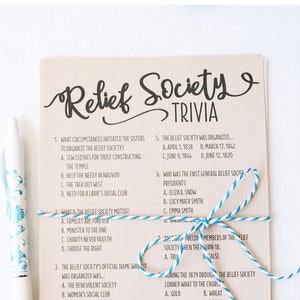 Relief Society
TRIVIA
1. WHAT CIRCUMSTANCES INITIATED THE SISTERS
TO ORGANIZE THE RELIEF SOCIETY?
A. SEW CLOTHES FOR THOSE CONSTRUCTING
THE TEMPLE
B. HELP THE NEEDY IN NAUVOO
C. THE TREK OUT WEST
D. NEED FOR A LADIE'S SOCIAL CLUB
WHAT IS THE RELIEF SOCIETY MOTTO?
FAMILIES ARE FOREVER
B. MINISTER TO THE ONE
C. CHARITY NEVER FAILETH
D. CHOOSE THE RIGHT
THE RELIEF SOCIETY'S OFFICIAL NAME WHEN
WAS ORGANIZED WAS...
A. THE BENEVOLENT SOCIETY
B. WOMEN'S SOCIAL CLUB
5. THE RELIEF SOCIETY WAS ORGANIZED...
A. APRIL 5, 1838 B. MARCH 17, 1842
C. JUNE 9, 1844 D. JUNE 12, 1820
WHO WAS THE FIRST GENERAL RELIEF SOCIETY
PRESIDENT?
A. ELIZA R. SNOW
B. LUCY MACK SMITH
C. EMMA SMITH
MEMBERS OF THE RELIEF
SOCIETY WHEN THEY
A. TRUE B. FALSE
DURING THE 1879 DROUGHT THE RELIEF SOCIETY
LOANED WHAT TO THE CHURCH
A. GOLD WHEAT